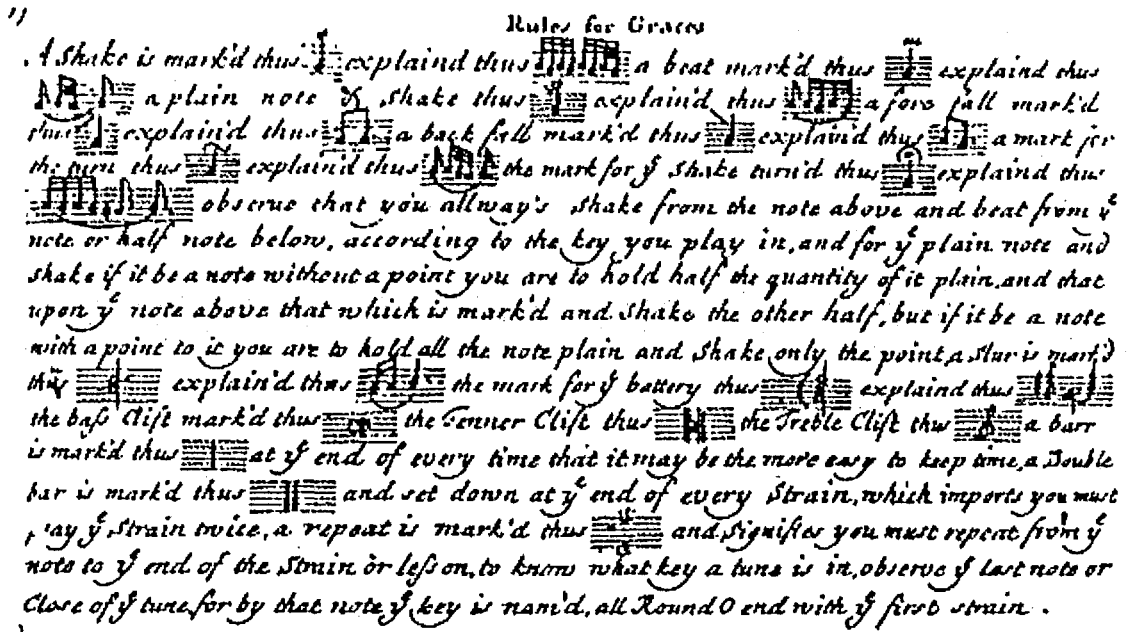 Rules for Graces
A Shake is mark'd thus explaind thus a beat mark'd thus explaind thus
a plain note & shake thus explain'd thus a fore fall mark'd
thus explain'd thus a back fall mark'd thus explain'd thus a mark for
the turn thus explain'd thus the mark for yᵉ shake turn'd thus explaind thus
observe that you allway's shake from the note above and beat from yᵉ
note or half note below, according to the key you play in, and for yᵉ plain note and
shake if it be a note without a point you are to hold half the quantity of it plain, and that
upon yᵉ note above that which is mark'd and shake the other half, but if it be a note
with a point to it you are to hold all the note plain and shake only the point, a slur is mark'd
thus explain'd thus the mark for yᵉ battery thus explaind thus
the baſs Cliſt mark'd thus the Tenner Cliſt thus the Treble Cliſt thus a barr
is mark'd thus at yᵉ end of every time that it may be the more easy to keep time, a Double
bar is mark'd thus and set down at yᵉ end of every Strain, which imports you must
play yᵉ Strain twice, a repeat is mark'd thus and signifies you must repeat from yᵉ
note to yᵉ end of the Strain or leſson, to know what key a tune is in, observe yᵉ last note or
Close of yᵉ tune, for by that note yᵉ key is nam'd, all Round O end with yᵉ first strain.